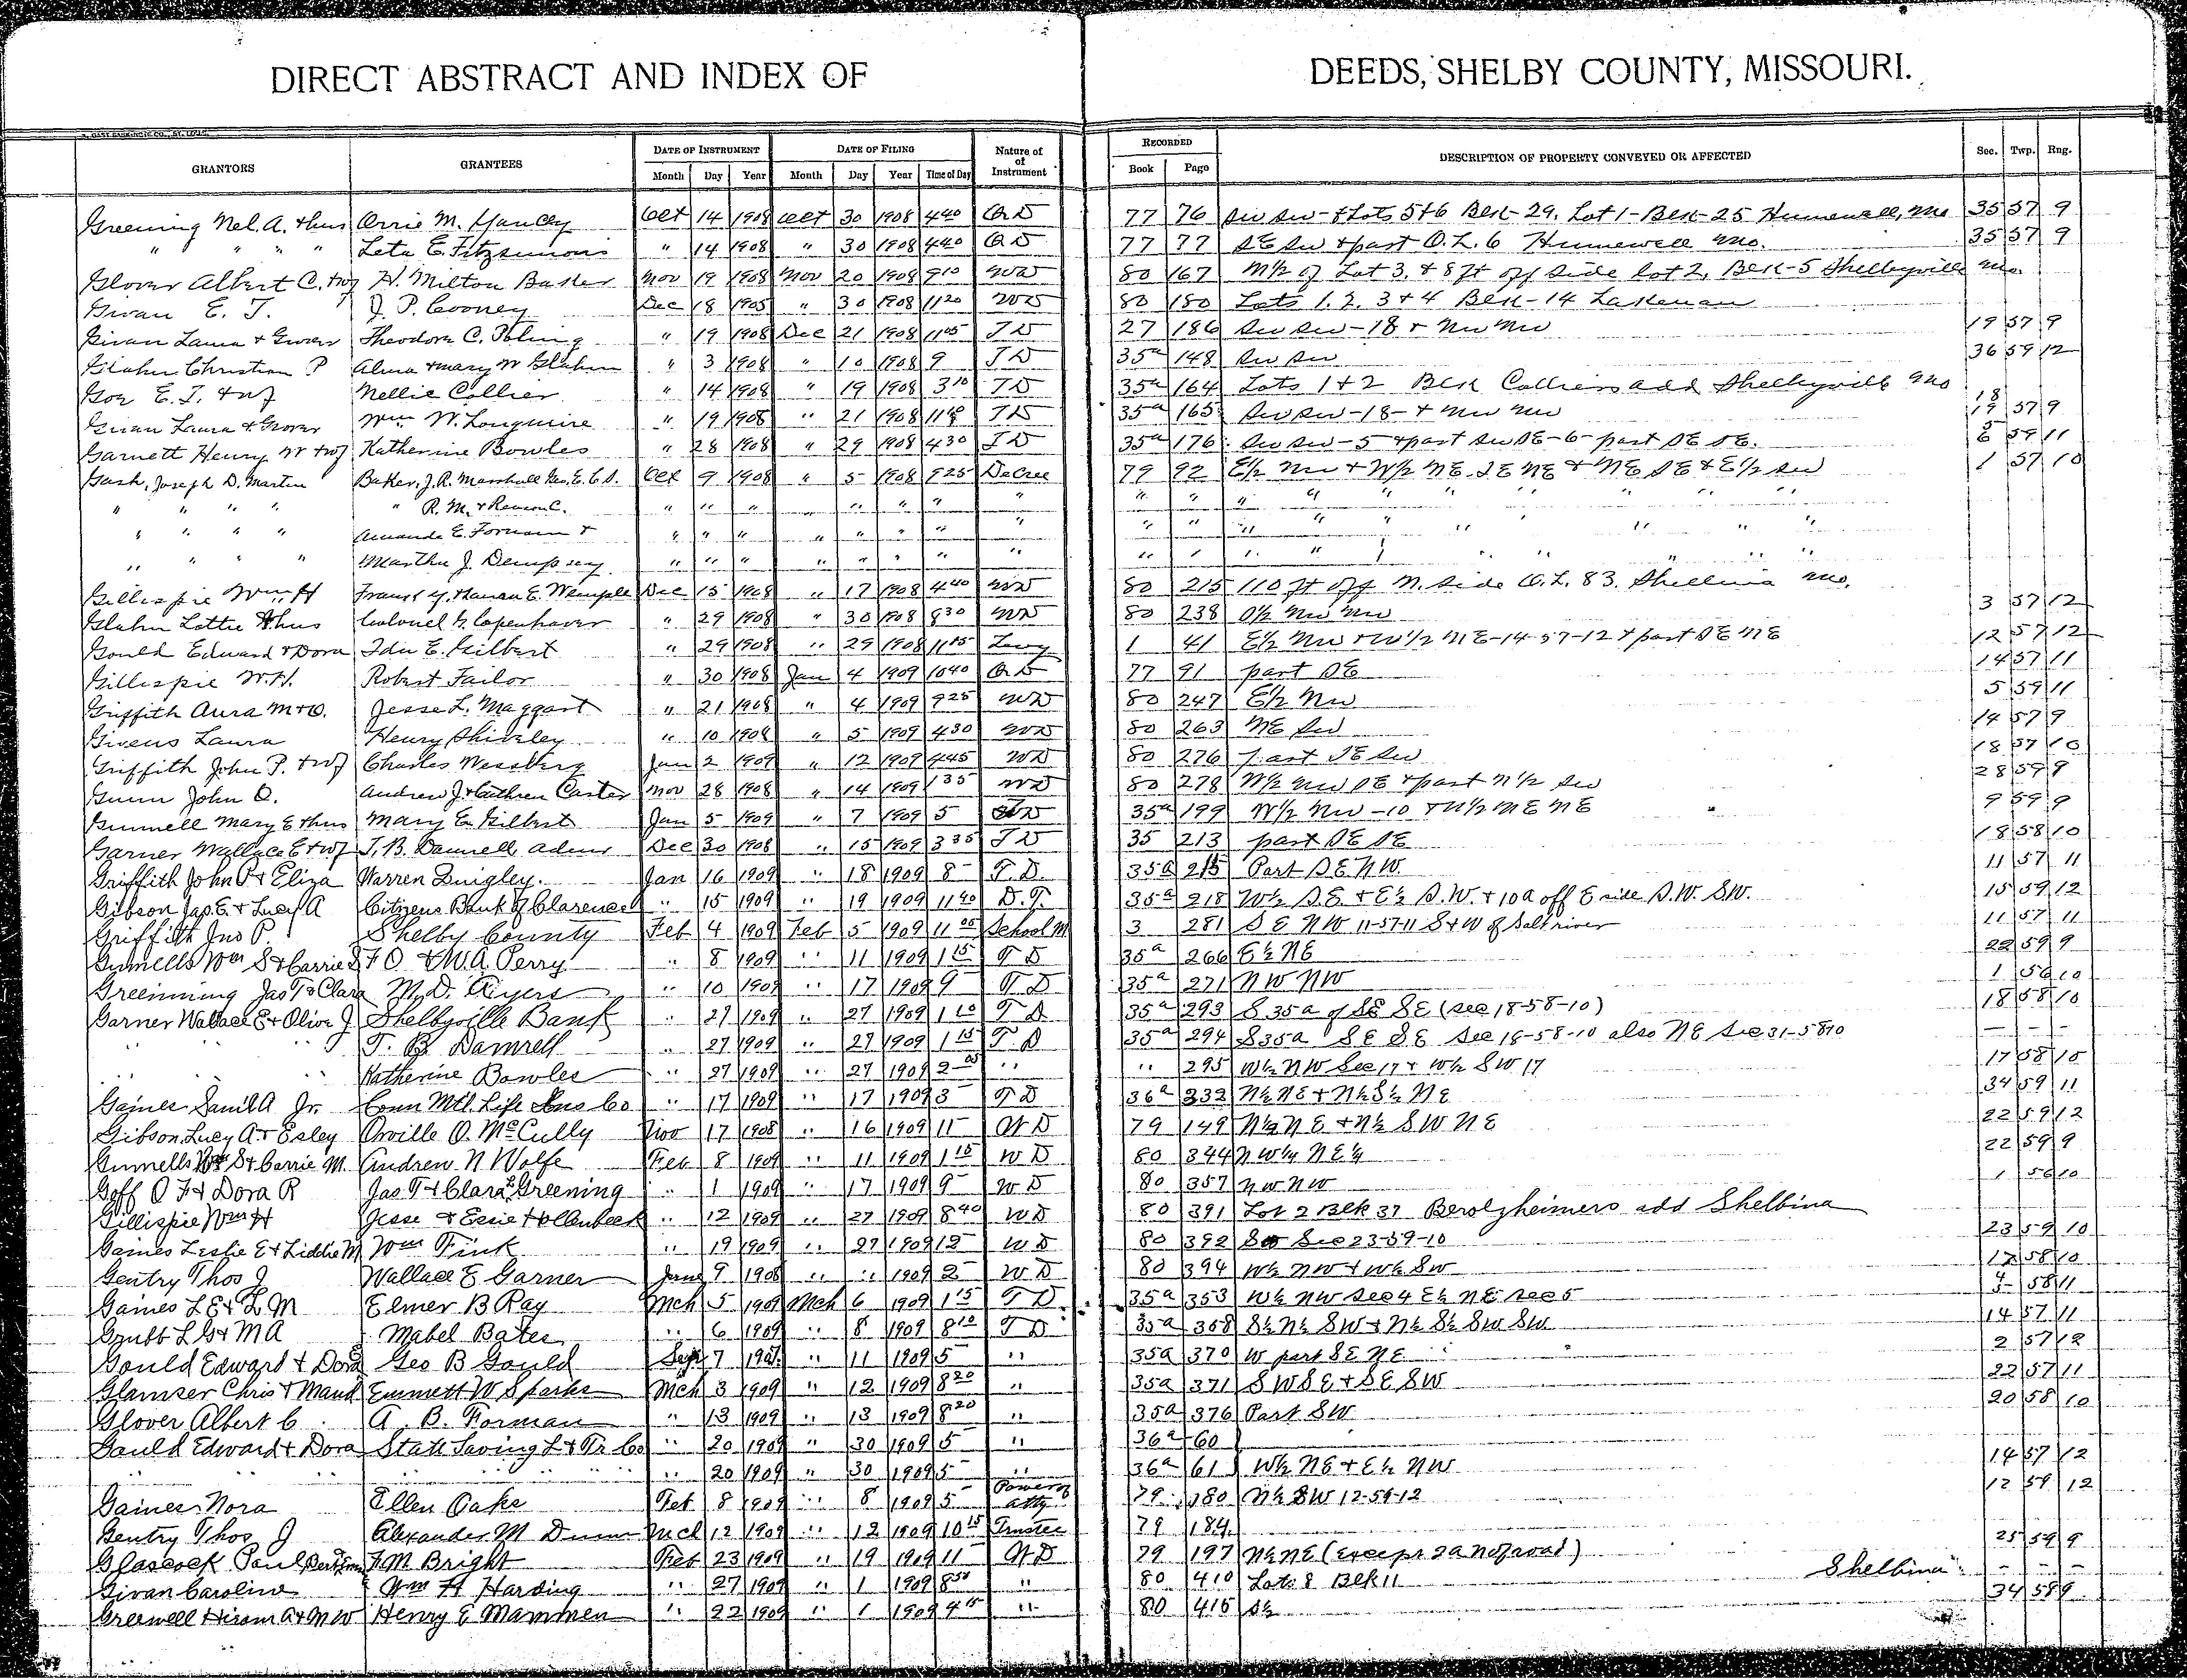 DIRECT ABSTRACT AND INDEX OF DEEDS, SHELBY COUNTY, MISSOURI.
GRANTORS GRANTEES DATE OF INSTRUMENT DATE OF FILING Nature of Instrument RECORDED DESCRIPTION OF PROPERTY CONVEYED OR AFFECTED Sec. Twp. Rng.
Month Day Year Month Day Year Time of Day Book Page
Greening Nel. A. + hus Orrie M. Oct 14 1908 Oct 30 1908 4 40 Q D 77 76 SW SW - + Lots 5+6 Blk-29. Lot 1-Blk-25 Hunnewell, Mo 35 57 9
" " " " Leta E. Fitzsimmons " 14 1908 " 30 1908 4 40 Q D 77 77 SE SW + part O.L. 6 Hunnewell Mo. 35 57 9
Glover Albert C. + wf H. Milton Baker Nov 19 1908 Nov 20 1908 9 10 WD 80 167 of Lot 3. + 8 ft off side lot 2, Blk-5 Shelbyville Mo.
Givan E. T. J. P. Cooney Dec 18 1905 " 30 1908 11 20 WD 80 180 Lots 1. 2. 3 + 4 Blk-14 Lakenan
Givan Laura + Grover Theodore C. Poling " 19 1908 Dec 21 1908 11 05 T D 27 186 SW SW-18 + NW NW 19 57 9
Glahn Christian P Alma + Mary W Glahn " 3 1908 " 10 1908 9 T D 35a 148 SW SW 36 59 12
Goe E. T. + wf Nellie Collier " 14 1908 " 19 1908 3 10 T D 35a 164 Lots 1 + 2 Blk Colliers add Shelbyville Mo
Givan Laura + Grover Wm. W. Longmire " 19 1908 " 21 1908 T D 35a 165 SW SW-18- + NW NW 18 19 57 9
Garnett Henry W + wf Katherine Bowles " 28 1908 " 29 1908 4 30 T D 35a 176 SW SW-5 + part SW SE-6- part SE SE. 5 6 59 11
Gash, Joseph D. Martin Baker, J. R. Marshall Geo. E. C. S. Oct 9 1908 " 5 1908 9 25 Decree 79 92 E½ NW + W½ NE. SE NE + NE SE + E½ SW 1 57 10
" " " " " R. M. + C. " " " " " " " " " " " " " " " "
" " " " Amanda E. Forman + " " " " " " " " " " " " " " "
" " " " Martha J. Dempsey " " " " " " " " " " " " " "
Gillespie Wm. H Frank Y. + Laura E. Wemple Dec 15 1908 " 17 1908 4 40 WD 80 215 110 ft off N. side O.L. 83. Shelbina Mo.
Glahn Lottie + hus Colonel G. Copenhaver " 29 1908 " 30 1908 8 30 WD 80 238 NW NW 3 57 12
Gould Edward + Dora Ida E. Gilbert " 29 1908 " 29 1908 11 15 1 41 E½ NW + W½ NE-14-57-12 + part SE NE 12 57 12
Gillespie W. H. Robert Failor " 30 1908 Jan 4 1909 10 40 Q D 77 91 part SE 14 57 11
Griffith Aura M + O. Jesse L. Maggart " 21 1908 " 4 1909 9 25 WD 80 247 E½ NW 5 59 11
Givens Laura Henry Shively " 10 1908 " 5 1909 4 30 WD 80 263 NE SW 14 57 9
Griffith John P. + wf Charles Wessberg Jan 2 1909 " 12 1909 9 45 WD 80 276 part SE SW 18 57 10
Gunn John O. Andrew J + Cathren Carter Nov 28 1908 " 14 1909 1 35 WD 80 278 W½ NW SE + part N½ SW 28 59 9
Gunnell Mary E + hus Mary E Gilbert Jan 5 1909 " 7 1909 5 T D 35a 199 W½ NW-10 + N½ NE NE 9 59 9
Garner Wallace E + wf T. B. Damrell admr Dec 30 1908 " 15 1909 3 35 T D 35 213 part SE SE 18 58 10
Griffith John P + Eliza Warren Quigley. Jan 16 1909 " 18 1909 8 T. D. 35a 215 Part S E N W. 11 57 11
Gibson Jas. E. + Lucy A Citizens Bank of Clarence " 15 1909 " 19 1909 11 40 D. T. 35a 218 W½ S.E. + E½ S.W. + 10a off E side S.W. SW. 15 59 12
Griffith Jno P. Shelby County Feb 4 1909 Feb 5 1909 11 05 School M 3 281 S E NW 11-57-11 S + W of Salt river 11 57 11
Gunnells Wm S + Carrie F O + W. A. Perry " 8 1909 " 11 1909 1 15 T D 35a 266 E½ NE 22 59 9
Greenning Jas T + Clara M. D. Ayers " 10 1909 " 17 1909 9 T D 35a 271 NW NW 1 56 10
Garner Wallace E + Olive J. Shelbyville Bank " 27 1909 " 27 1909 1 10 T D 35a 293 S 35a of SE SE (see 18-58-10) 18 58 10
" " " T. B. Damrell " 27 1909 " 27 1909 1 15 T. D 35a 294 S35a SE SE Sec 18-58-10 also NE Sec 31-58-10 - - -
" " " Katherine Bowles " 27 1909 " 27 1909 2 05 " " 295 W½ NW Sec 17 + W½ SW 17 17 58 10
Gaines Saml A Jr. Conn Mtl. Life Ins Co " 17 1909 " 17 1909 3 T D 36a 332 N½ NE + N½ S½ NE 34 59 11
Gibson, Lucy A + Esley Orville O. McCully Nov 17 1908 " 16 1909 11 W D 79 149 N½ NE + N½ SW NE 22 59 12
Gunnells Wm S + Carrie M. Andrew N Wolfe Feb 8 1909 " 11 1909 1 15 W D 80 344 NW¼ NE¼ 22 59 9
Goff O F + Dora R Jas T + Clara Greening " 1 1909 " 17 1909 9 W D 80 357 NW NW 1 56 10
Gillispie Wm H Jesse + Essie Hollenbeck " 12 1909 " 27 1909 8 40 W D 80 391 Lot 2 Blk 37 Berolzheimers add Shelbina
Gaines Leslie E + Liddie M Wm Fink " 19 1909 " 27 1909 12 W D 80 392 Sec 23-59-10 23 59 10
Gentry Thos J Wallace E Garner June 9 1908 " " 1909 2 W D 80 394 W½ NW + W½ SW 17 58 10
Gaines L E + L M Elmer B Ray Mch 5 1909 Mch 6 1909 1 15 T D 35a 353 W½ NW Sec 4 E½ NE Sec 5 4- 58 11
Grubb L G + M A Mabel Bates " 6 1909 " 8 1909 8 10 T D 35a 368 S½ N½ SW + N½ S½ SW SW 14 57 11
Gould Edward + Dora Geo B Gould Sep 7 1907 " 11 1909 5 " 35a 370 W part SE NE 2 57 12
Glamser Chris + Maud Emmett W Sparks Mch 3 1909 " 12 1909 8 20 " 35a 371 SW SE + SE SW 22 57 11
Glover Albert C A. B. Forman " 13 1909 " 13 1909 8 20 " 35a 376 Part SW 20 58 10
Gould Edward + Dora State Saving L + Tr Co " 20 1909 " 30 1909 5 " 36a 60
" " " " " " " " 20 1909 " 30 1909 5 " 36a 61 W½ NE + E½ NW 14 57 12
Gaines Nora Ellen Oaks Feb 8 1909 " 8 1909 5 Power of atty 79 180 N½ SW 12-59-12 12 59 12
Gentry Thos J Alexander M Dunn Mch 12 1909 " 12 1909 10 15 Trustee 79 184
Glascock Paul F. M Bright Feb 23 1909 " 19 1909 11 W D 79 197 N½ NE (Except 2a N of road) 25 59 9
Givan Caroline Wm H Harding " 27 1909 " 1 1909 8 50 " 80 410 Lots 8 Blk 11 Shelbina - - -
Greenwell Hiram A + M W Henry E Mammen " 22 1909 " 1 1909 9 15 " 80 415 S½ 34 58 9